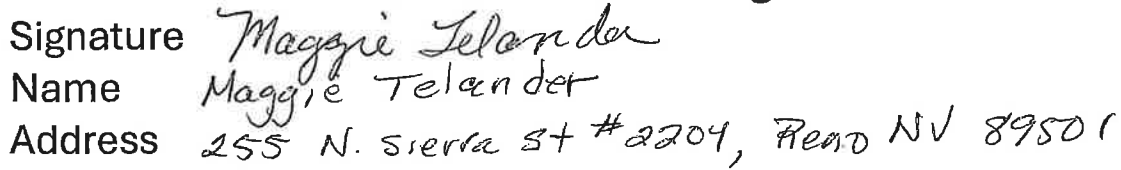 Signature Maggie Telander
Name Maggie Telander
Address 255 N. Sierra St #2204, Reno NV 89501